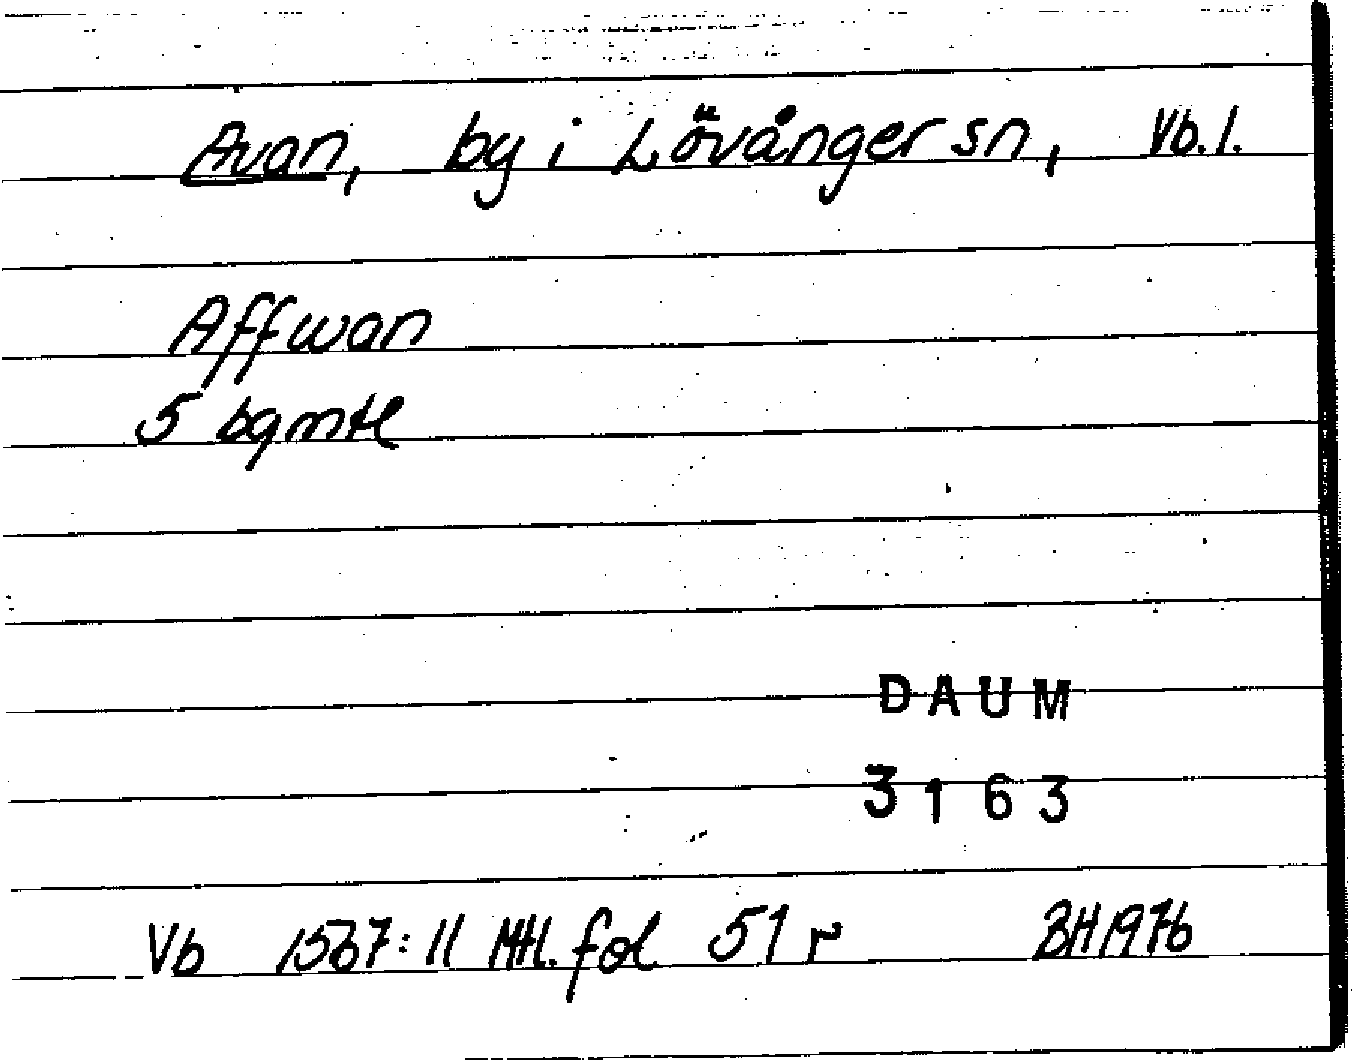 Avan, by i Lövånger sn, Vb. l.
Affwan
5 bgmtl
DAUM
3163
Vb 1567:11 Mtl. fol 51 r BH 1976